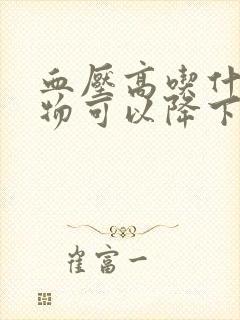 血壓高喫什
物可以降下
崔富一